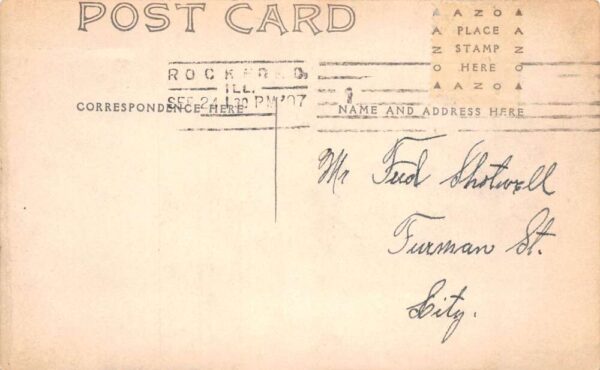 POST CARD
AZO
PLACE
STAMP
HERE
AZO
ROCKFORD,
ILL.
SEP 24 1 30 PM '07
CORRESPONDENCE HERE
NAME AND ADDRESS HERE
Mr Fred Shotwell
Furman St.
City.